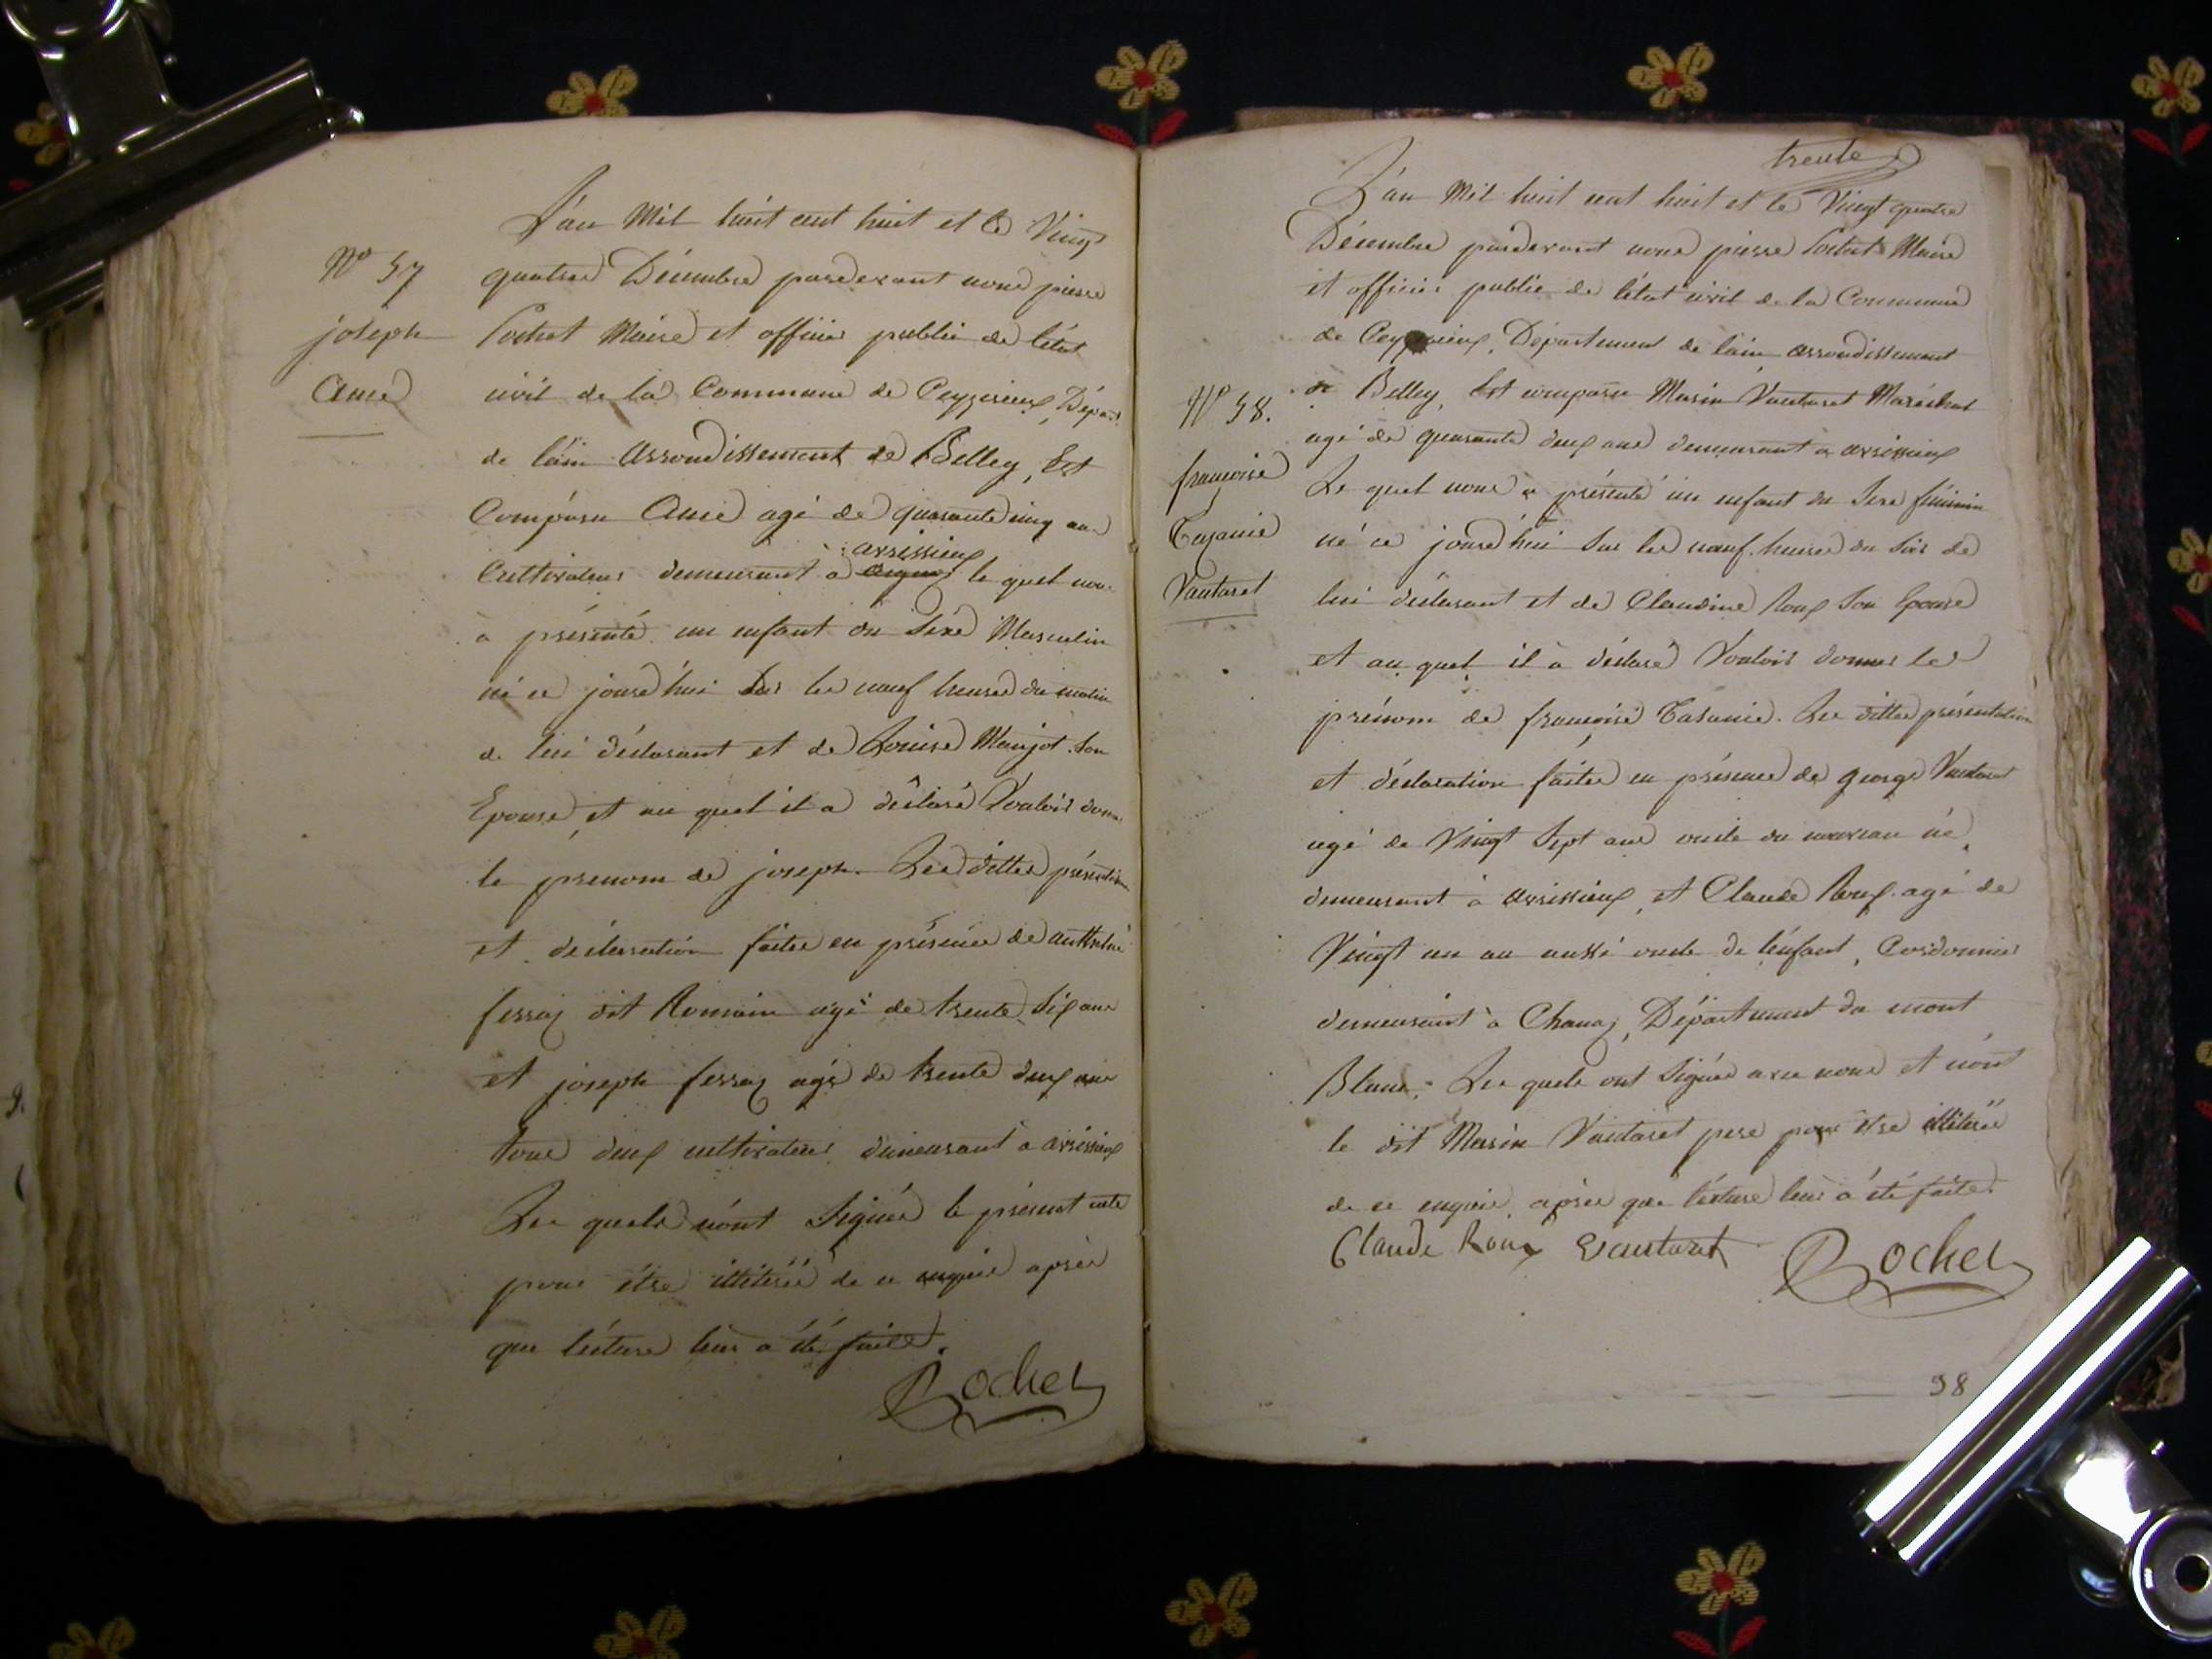 L'an Mil huit cent huit et le Vingt
quatre Décembre pardevant nous pierre
Nº 57
joseph
Amé
Pochet Maire et officier public de l'état
civil de la Commune de Ceyzerieux, Départ.
de l'ain arrondissement de Belley, Est
Comparu Amé agé de quarante cinq ans
arvissieux
Cultivateur demeurant à le quel nous
à présenté un enfant du sexe Masculin
né ce jourd'hui sur les neuf heures du matin
de lui déclarant et de Louise Manjot son
Epouse, et au quel il a déclaré Vouloir donner
le prenom de joseph. Les dittes présentation
et déclaration faites en présence de anthelme
ferraz dit Romain agé de trente six ans
et joseph ferraz agé de trente deux ans
tous deux cultivateurs demeurant a arvissieux
Les quels n'ont Signés le présent acte
pour être illitérés de ce enquis après
que lécture leur a été faite.
Rochet
trente
L'an Mil huit cent huit et le Vingt quatre
Décembre pardevant nous pierre Pochet Maire
et officier public de l'état civil de la Commune
de Ceyzerieux, Département de l'ain arrondissement
de Belley, Est comparu Marin Vautaret Maréchal
Nº 58.
françoise
Tasanie
Vautaret
agé de quarante deux ans demeurant à arvissieux
Le quel nous a présenté un enfant du Sexe féminin
né ce jourd'hui sur les neuf heures du soir de
lui déclarant et de Claudine Roux Son Epouse
et au quel il à déclaré Vouloir donner les
prénom de françoise Tasanie. Les dittes présentation
et déclaration faites en présence de george Vautaret
agé de Vingt Sept ans oncle du nouveau né,
demeurant à arvissieux, et Claude Roux agé de
Vingt un an aussi oncle de l'enfant, Cordonnier
demeurant à Chanaz, Département du mont
Blanc; Les quels ont Signés avec nous et non
le dit Marin Vautaret pere pour etre illitéré
de ce enquis, après que lécture leur à été faite.
Claude Roux Vautaret Rochet
58